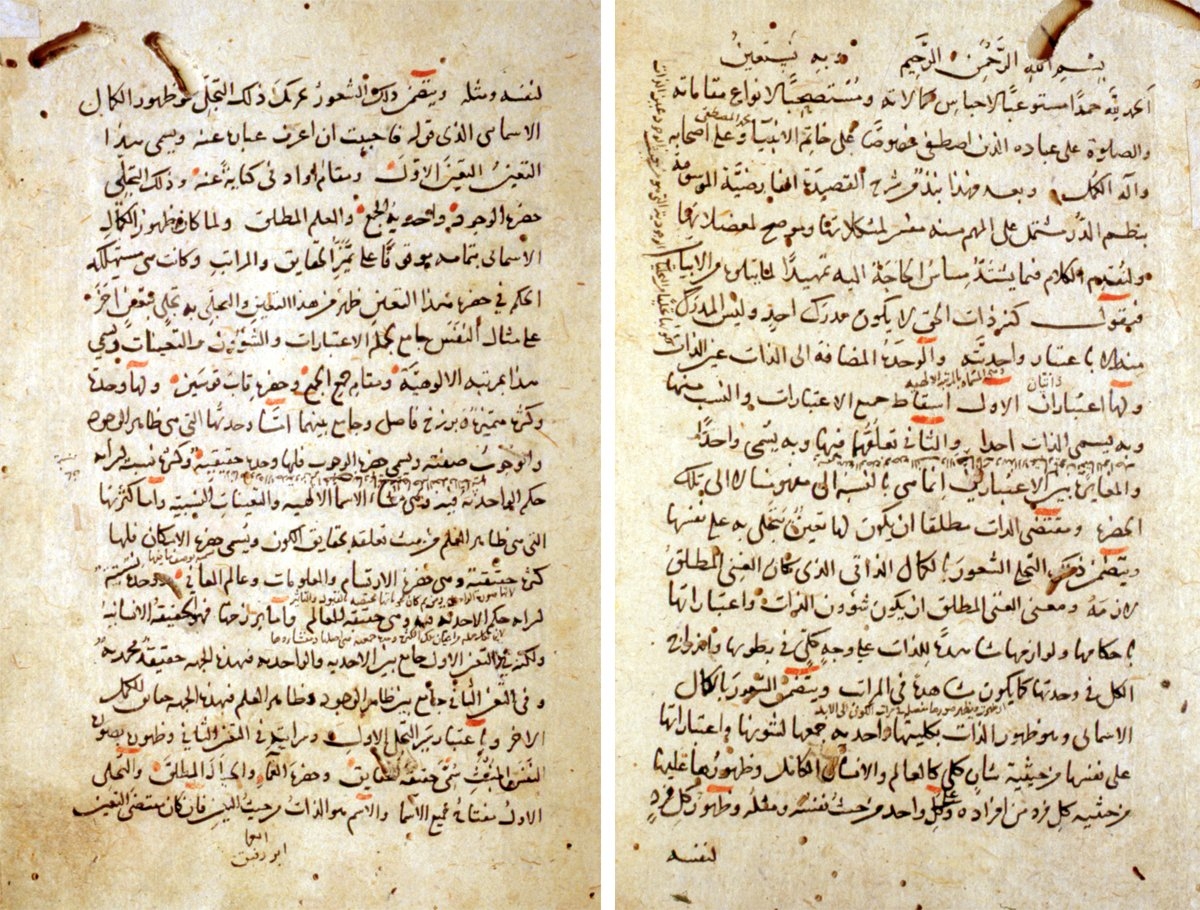 بسم الله الرحمن الرحيم وبه نستعين
الحمد لله حمدا مستوعبا لاجناس كمالاته ومستصحبا لانواع مقاماته
والصلوة على عباده الذين اصطفى خصوصا على خاتم الانبيا وعلى اصحابه
محمد المصطفى
وآله الكمل وبعد فهذا نبذ من شرح القصيدة الفارضية الموسومة
بنظم الدر مشتمل على المهم منه مفسر لمشكلاتها وموضح لمعضلاتها
ولنقدم الكلام فيما يشتد مساس الحاجة اليه تمهيدا لما يتلوه من الابيات
فنقول كنه ذات الحق لا يكون مدرك احد وليس المدرك
منها الا باعتبار واحديته والوحدة المضافة الى الذات عين الذات
ولها اعتباران الاول اسقاط جميع الاعتبارات والنسب منها
ذاتيان
وبه يسمى الذات احدا والثاني تعلقها فيها وبه يسمى واحدا
والمغايرة بين الاعتبارين انما هي بالنسبة الى مفهومنا لا الى تلك
الحضرة ومقتضى الذات مطلقا ان يكون لها تعين تتجلى به على نفسها
ويتضمن ذلك التجلي الشعور بالكمال الذاتي الذي كان الغنى المطلق
لازمه ومعنى الغنى المطلق ان يكون شؤون الذات واعتباراتها
باحكامها ولوازمها شاهدة للذات على وجه كلي في بطونها واندراج
الكل في وحدتها كما يكون شاهدة في المراتب ويتضمن الشعور بالكمال
الاسمائي وهو ظهور الذات بكليتها واحدية جمعها لشئونها واعتباراتها
على نفسها من حيثية شان كلي كالعالم والانسان الكامل وظهورها عليها
من حيثية كل فرد من افراده وكل واحد من حيث نفسه ومثله وظهور كل فرد
لنفسه
لنفسه ومثله ويتضمن ذلك الشعور تحرك ذلك التجلي نحو ظهور الكمال
الاسمائي الذي قوله فاحببت ان اعرف عبارة عنه ويسمى هذا
التعين التعين الاول ومقام او ادنى كناية عنه وذلك التجلي
حضرة الوجود واحدية الجمع والعلم المطلق ولما كان ظهور الكمال
الاسمائي بتمامه موقوفا على تميز الحقايق والمراتب وكانت هي مستهلكة
الحكم في حضرة هذا التعين ظهر من هذا التعين والتجلي به تجلي تعين آخر
على مثال النفس جامع لجملة الاعتبارات والشؤون والتعينات ويسمى
هذا بمرتبة الالوهية ومقام جمع الجمع وحضرة قاب قوسين ولها وحدة
وكثرة متميزة ببرزخ فاصل وجامع بينهما اما وحدتها التي هي ظاهر الوجود
والوجوب صفته ويسمى حضرة الوجوب فلها وحدة حقيقية وكثرة نسبية لسراية
حكم الواحدية فيه وهي منشاء الاسما الالهية والتعينات النسبية واما كثرتها
التي هي ظاهر العلم من حيث تعلقه بحقايق الكون ويسمى حضرة الامكان فلها
كثرة حقيقية وهي حضرة الارتسام والمعلومات وعالم المعاني ووحدة نسبية
لسراية حكم الاحدية فيه وهي حقيقة العالم واما برزخها فهو الحقيقة الانسانية
ولكنه في التعين الاول جامع بين الاحدية والواحدية فهذه الجهة حقيقة محمدية
وفي التعين الثاني جامع بين ظاهر الوجود وظاهر العلم فهذه الجهة حقايق الكمل
الاخر وباعتبار سير التجلي الاول وسرايته في التعين الثاني وظهوره بصورة
النفس المنبث سمي حقيقة الحقايق وحضرة العما والجواد المطلق والتجلي
الاول مفتاح جميع الاسما والاسم هو الذات من حيث التعين فان كان مقتضى التعين